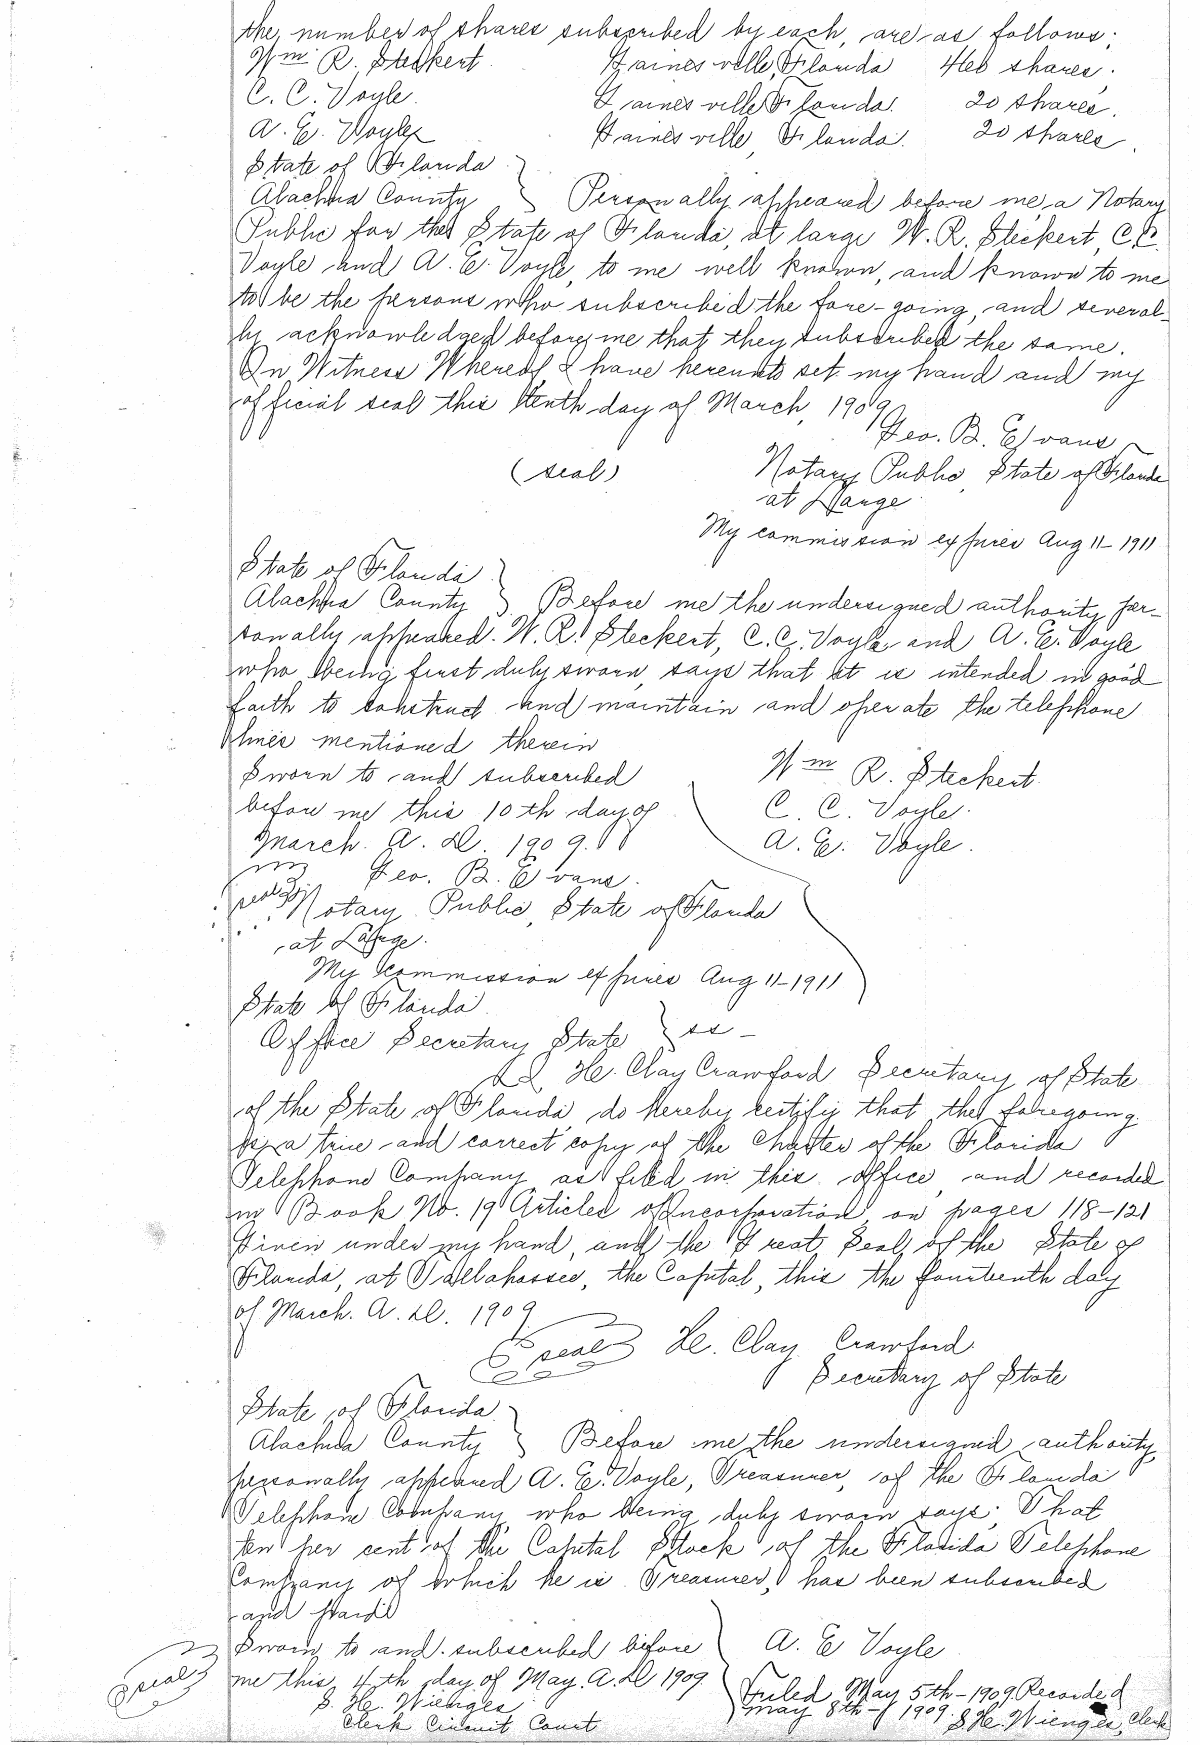 the number of shares subscribed by each, are as follows;
Wm R. Steckert. Gainesville, Florida 460 shares.
C. C. Voyle. Gainesville Florida. 20 shares.
A. E. Voyle Gainesville, Florida. 20 shares.
State of Florida }
Alachua County } Personally appeared before me, a Notary
Public for the State of Florida, at large W. R. Steckert, C.C.
Voyle and A. E. Voyle, to me well known, and known to me
to be the persons who subscribed the fore-going, and several-
ly acknowledged before me that they subscribed the same.
In Witness Whereof I have hereunto set my hand and my
official seal this tenth day of March, 1909.
Geo. B. Evans
(seal) Notary Public, State of Florida
at Large
My commission expires Aug 11-1911
State of Florida }
Alachua County } Before me the undersigned authority per-
sonally appeared. W. R. Steckert, C. C. Voyle and A. E. Voyle
who being first duly sworn, says that it is intended in good
faith to construct and maintain and operate the telephone
lines mentioned therein
Sworn to and subscribed Wm R. Steckert.
before me this 10th day of C. C. Voyle.
March. A. D. 1909. A. E. Voyle.
Geo. B. Evans.
seal Notary Public, State of Florida
at Large.
My commission expires Aug 11-1911
State of Florida
Office Secretary State } ss -
I, H. Clay Crawford Secretary of State
of the State of Florida do hereby certify that the foregoing
is a true and correct copy of the Charter of the Florida
Telephone Company as filed in this office, and recorded
in Book No. 19 Articles of Incorporation on pages 118-121
Given under my hand, and the Great Seal, of the State of
Florida, at Tallahassee, the Capital, this the fourteenth day
of March. A. D. 1909.
seal H. Clay Crawford
Secretary of State
State of Florida }
Alachua County } Before me the undersigned authority,
personally appeared A. E. Voyle, Treasurer, of the Florida
Telephone Company who being duly sworn says; That
ten per cent of the Capital Stock of the Florida Telephone
Company of which he is Treasurer, has been subscribed
and paid
Sworn to and subscribed before A. E Voyle
seal me this 4th day of May. A. D 1909. Filed May 5th-1909. Recorded
S. H. Wienges May 8th-1909. S H. Wienges, Clerk
Clerk Circuit Court